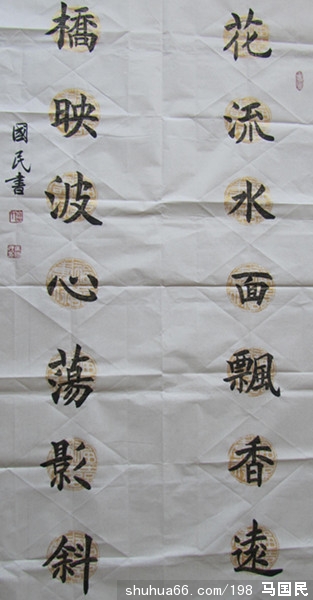 花流水面飄香遠
橋映波心蕩影斜
國民書
shuhua66.com/198 马国民